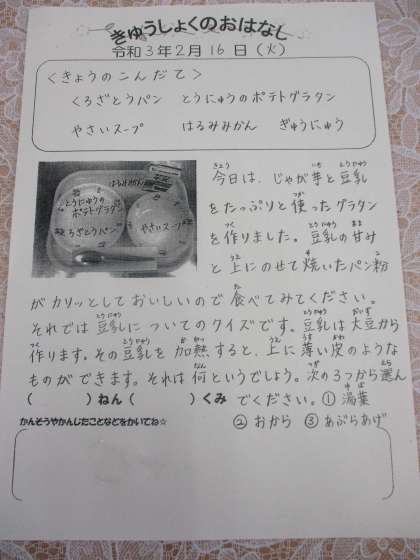 きゅうしょくのおはなし
令和3年2月16日(火)
<きょうのこんだて>
くろざとうパン とうにゅうのポテトグラタン
やさいスープ はるみみかん ぎゅうにゅう
はるみみかん
とうにゅうの
ポテトグラタン
くろざとうパン
やさいスープ
今日は、じゃが芋と豆乳
をたっぷりと使ったグラタン
を作りました。豆乳の甘み
と上にのせて焼いたパン粉
がカリッとしておいしいので食べてみてください。
それでは豆乳についてのクイズです。豆乳は大豆から
作ります。その豆乳を加熱すると、上に薄い皮のような
ものができます。それは何というでしょう。次の3つから選ん
でください。①湯葉
②おから ③あぶらあげ
( )ねん ( )くみ
かんそうやかんじたことなどをかいてね☆